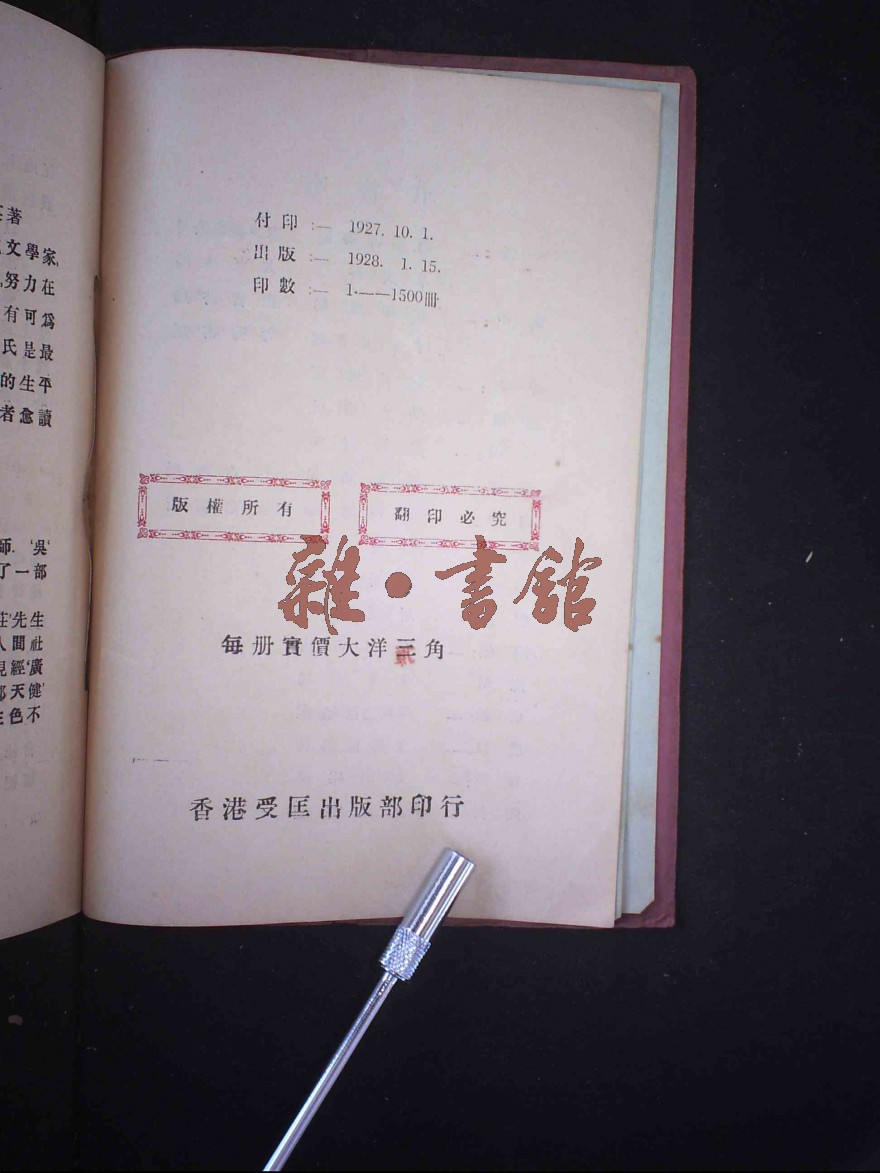 著
文學家,
努力在
有可爲
氏是最
的生平
者愈讀
師. '吳'
了一部
莊'先生
人間社
見經'廣
郭天健'
色不
付印:— 1927. 10. 1.
出版:— 1928. 1. 15.
印數:— 1·——1500冊
版權所有
翻印必究
雜·書館
每册實價大洋三角
香港受匡出版部印行